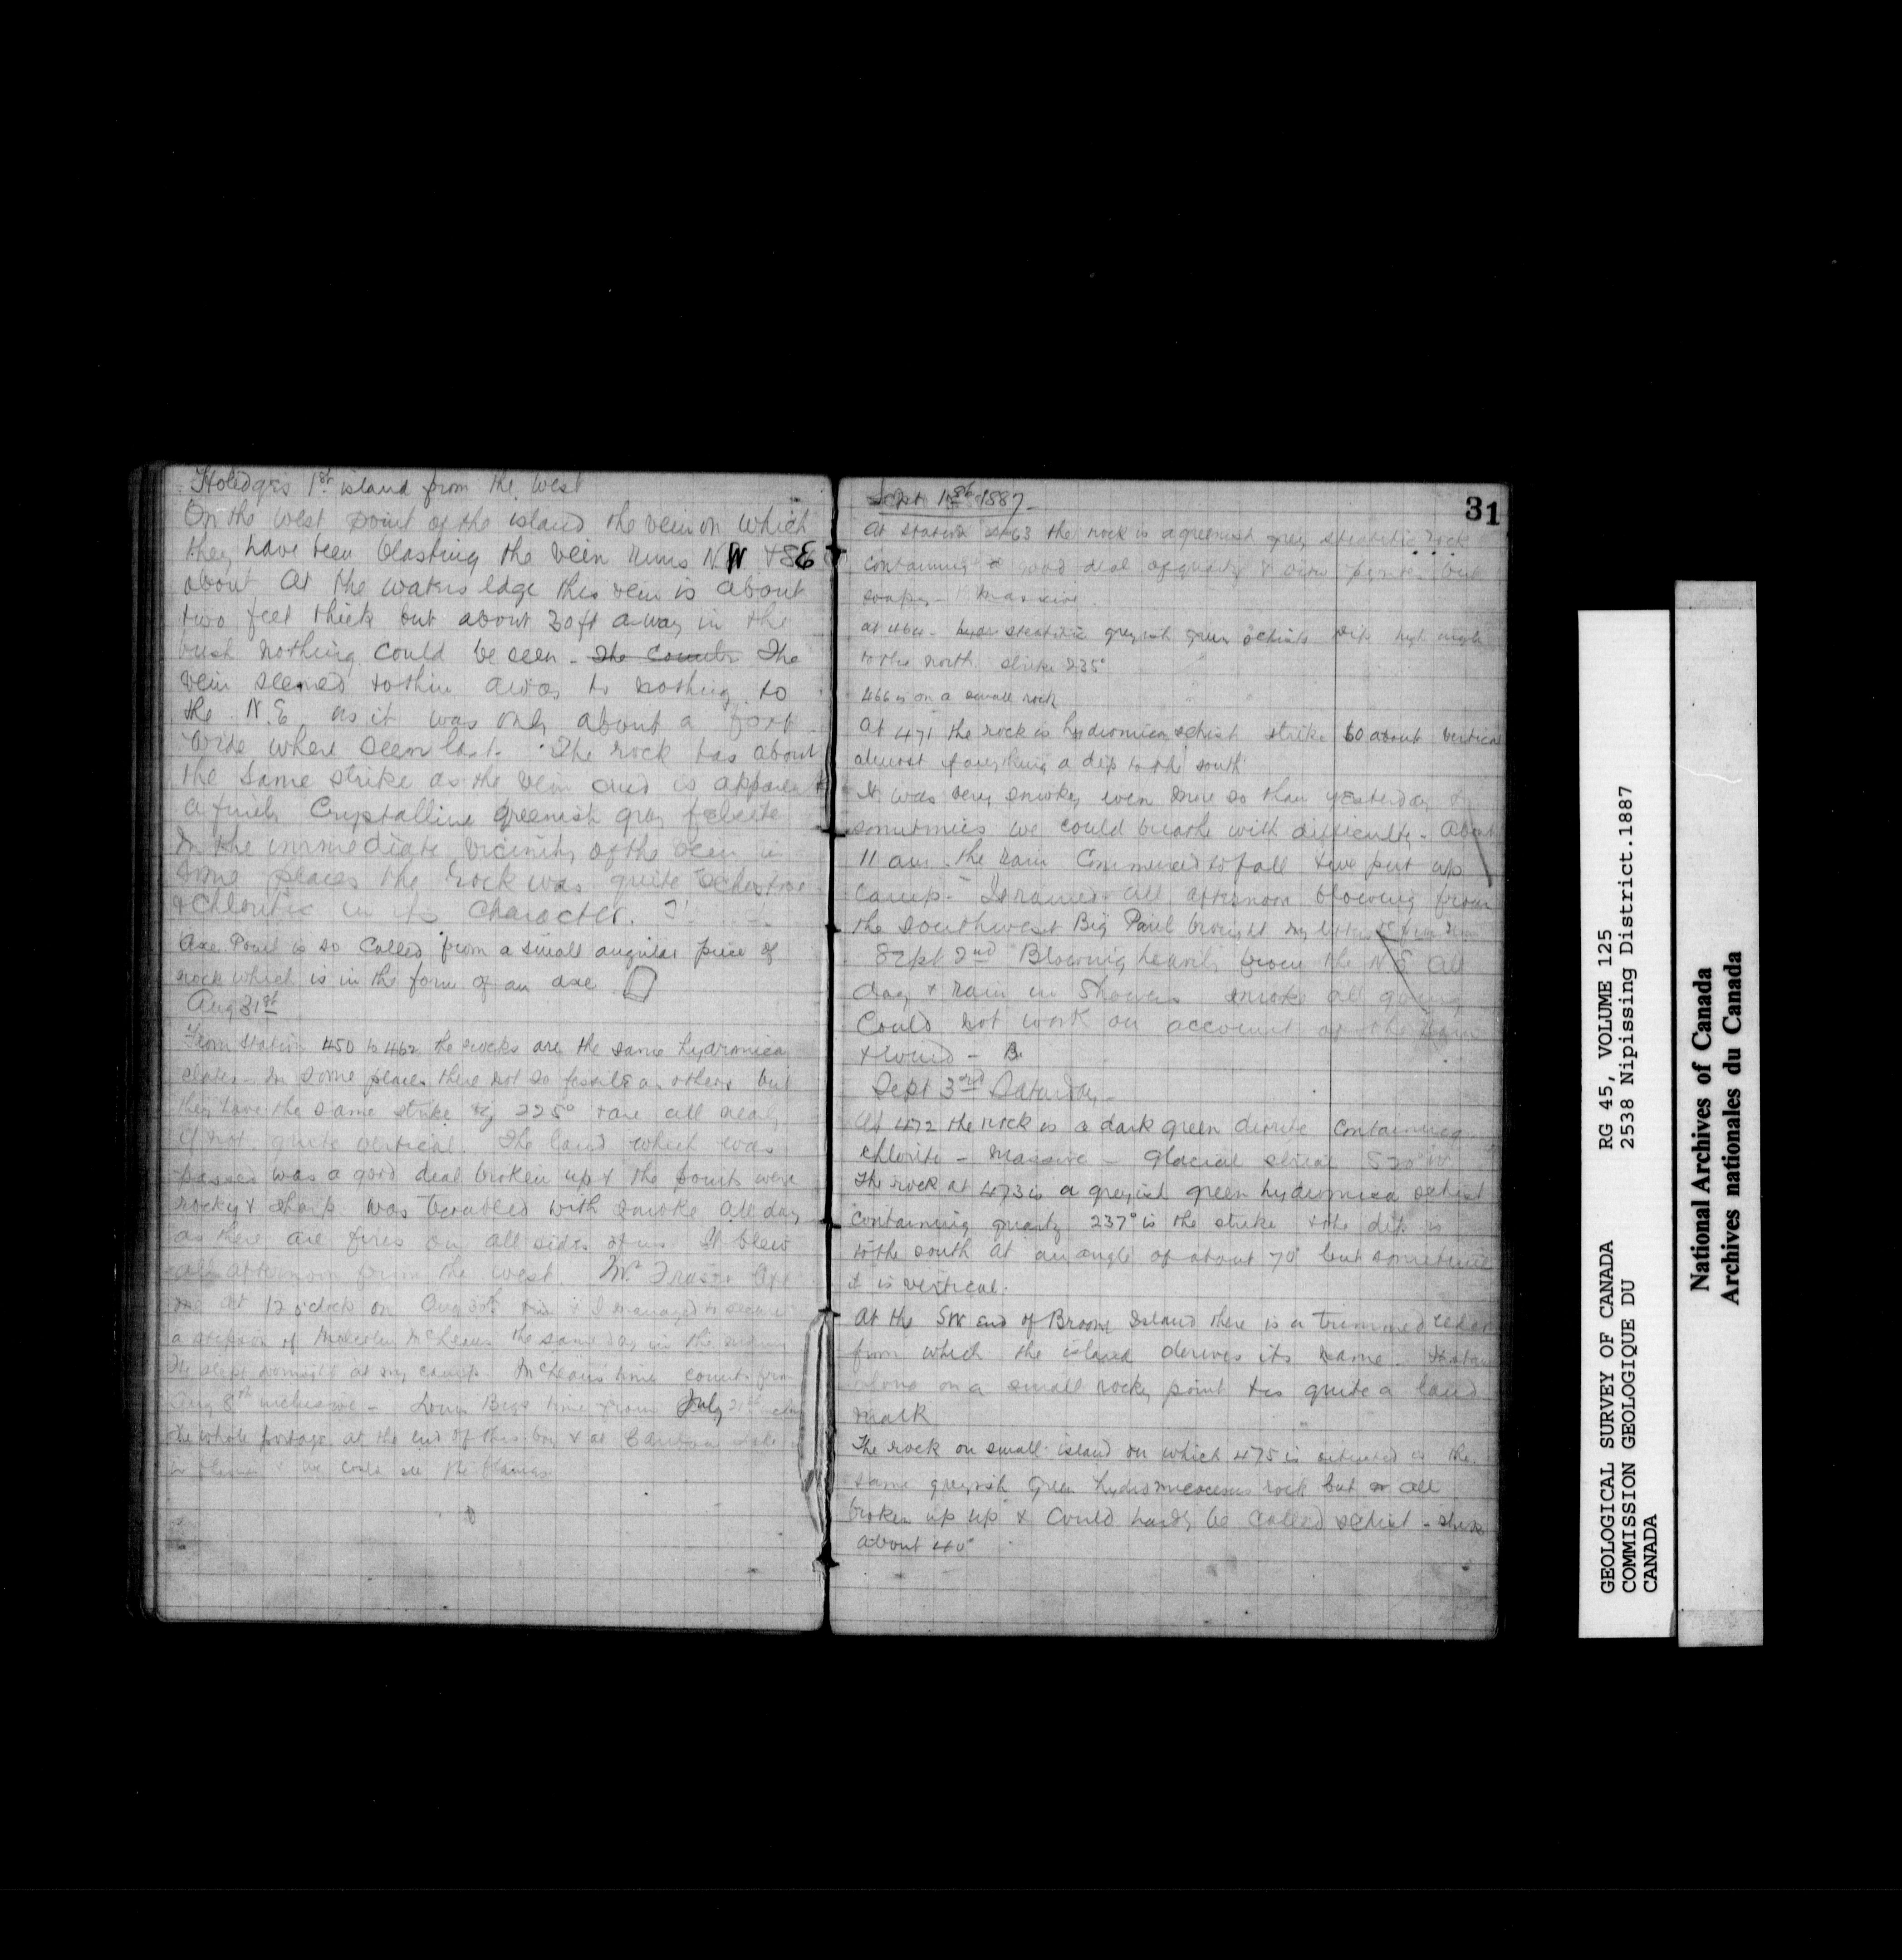 1st island from the West
On the West point of the island the vein on which
they have been blasting the vein runs N.W + SE
about At the waters edge this vein is about
two feet thick but about 30 ft away in the
bush nothing could be seen - The The
vein seemed to thin away to nothing to
the N.E. as it was only about a foot
wide where seen last. The rock has about
the same strike as the vein and is apparent
a finely Crystalline greenish grey felsite
In the immediate vicinity of the vein in
some places the rock was quite schistose
& chloritic in its character.
Axe Point is so called from a small angular piece of
rock which is in the form of an axe
Aug 31st
From station 450 to 462 the rocks are the same hydromica
slates - In some places there not so fissile as others but
they have the same strike 225° & are all nearly
if not quite vertical. The land which was
passed was a good deal broken up & the points were
rocky & sharp was troubled with smoke all day
as there are fires on all sides of us It blew
all afternoon from the west. Mr Fraser left
me at 12 o'clock on Aug 30th & I managed to secure
a stepson of Malcolm McLeans the same day in the
He slept at my camp McLeans time counts from
Aug 8th inclusive - Louis Bigs time from July
The whole portage at the end of this bay & at
& we could see the flames
31
Sept 1st 1887 -
At station 463 the rock is a greenish grey steatitic rock
containing a good deal of quartz &
soapy - Massive.
at 464 - steatitic greyish green schists dip high angle
to the north strike 235°
466 is on a small rock
At 471 the rock is hydromica schist strike 60 about vertical
almost if anything a dip to the south
It was very smokey even more so than yesterday &
sometimes we could breathe with difficulty - About
11 am the rain commenced to fall & we put up
camp - It rained all afternoon blowing from
the southwest Big Paul brought my letters
Sept 2nd Blowing heavily from the N E all
day & rain in showers smoke all going
Could not work on account of the
& wind - B
Sept 3rd Saturday -
At 472 the rock is a dark green diorite containing
chlorite - massive - Glacial striae S 20° W
The rock at 473 is a greyish green hydromica schist
containing quartz 237° is the strike & the dip is
to the south at an angle of about 70° but sometimes
it is vertical.
At the SW end of Broom Island there is a trimmed cedar
from which the island derives its name -
alone on a small rocky point & is quite a land
mark
The rock on small island on which 475 is situated is the
same greyish green hydromicaceous rock but all
broken up up & could hardly be called schist - strike
about 40°
GEOLOGICAL SURVEY OF CANADA RG 45, VOLUME 125
COMMISSION GEOLOGIQUE DU 2538 Nipissing District.1887
CANADA
National Archives of Canada
Archives nationales du Canada